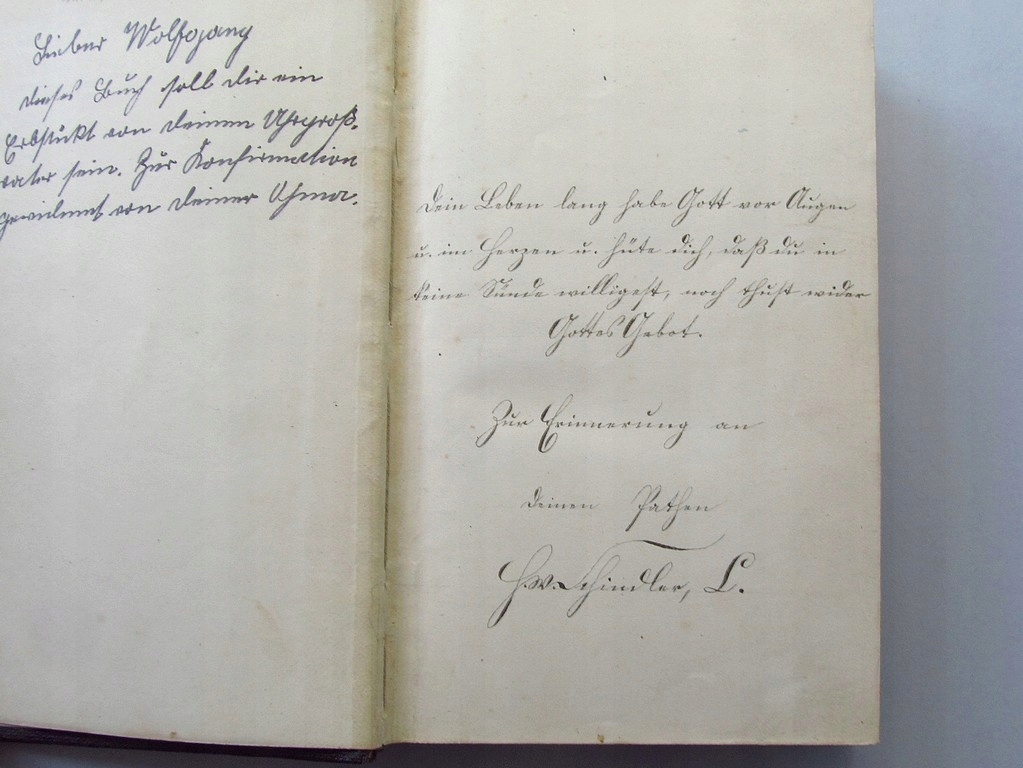 Lieber Wolfgang
dieses Buch soll dir ein
Erbstükt von deinem Uhrgroß-
vater sein. Zur Konfirmation
gewidmet von deiner Ohma.
Dein Leben lang habe Gott vor Augen
u. im Herzen u. hüte dich, daß du in
keine Sünde willigest, noch thust wider
Gottes Gebot.
Zur Erinnerung an
deinen Pathen
H. W. Schindler, L.